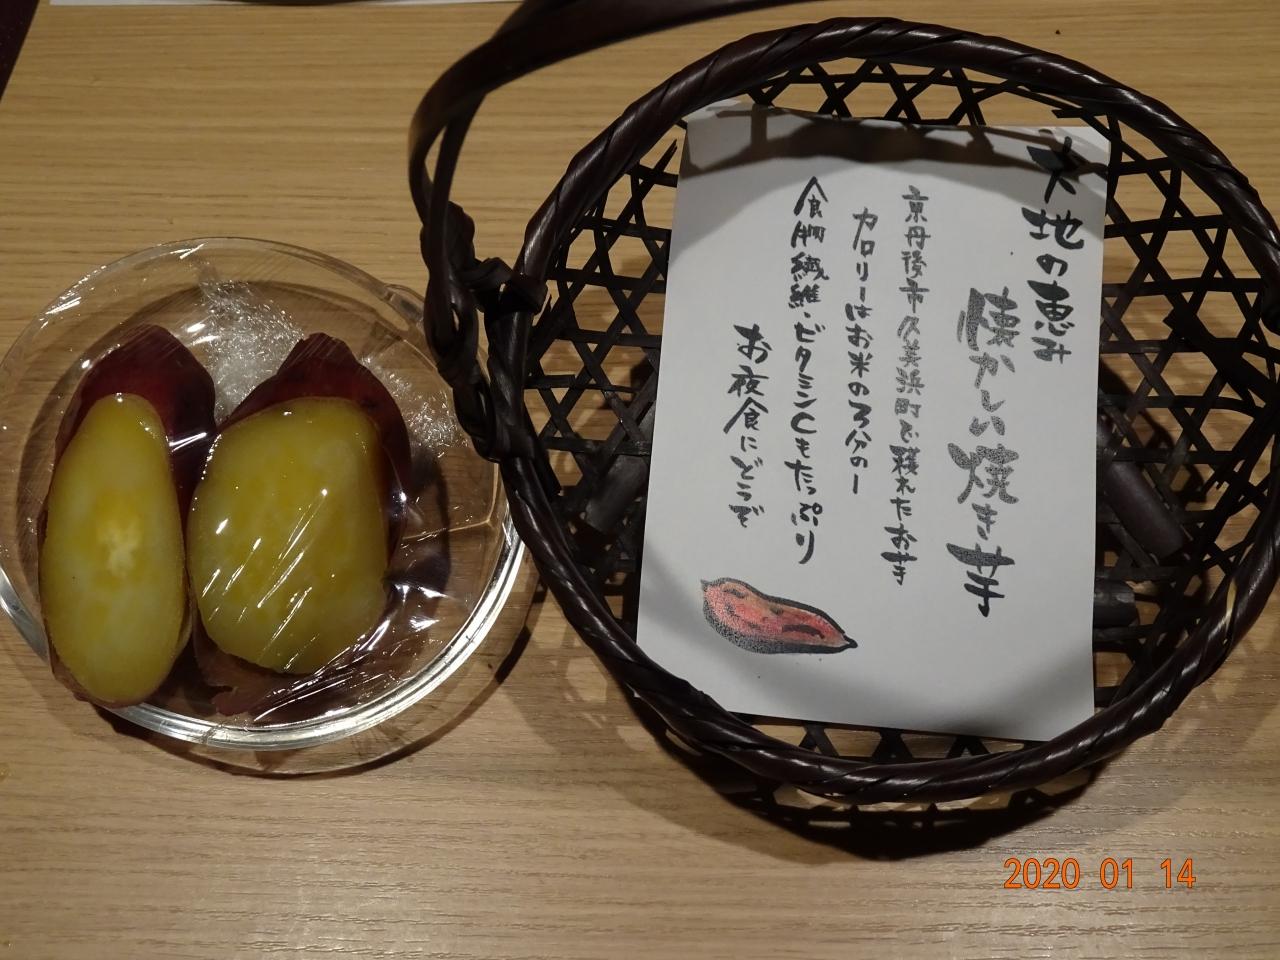 大地の恵み
懐かしい焼き芋
京丹後市久美浜町で穫れたお芋
カロリーはお米の3分の一
食物繊維・ビタミンCもたっぷり
お夜食にどうぞ
2020 01 14